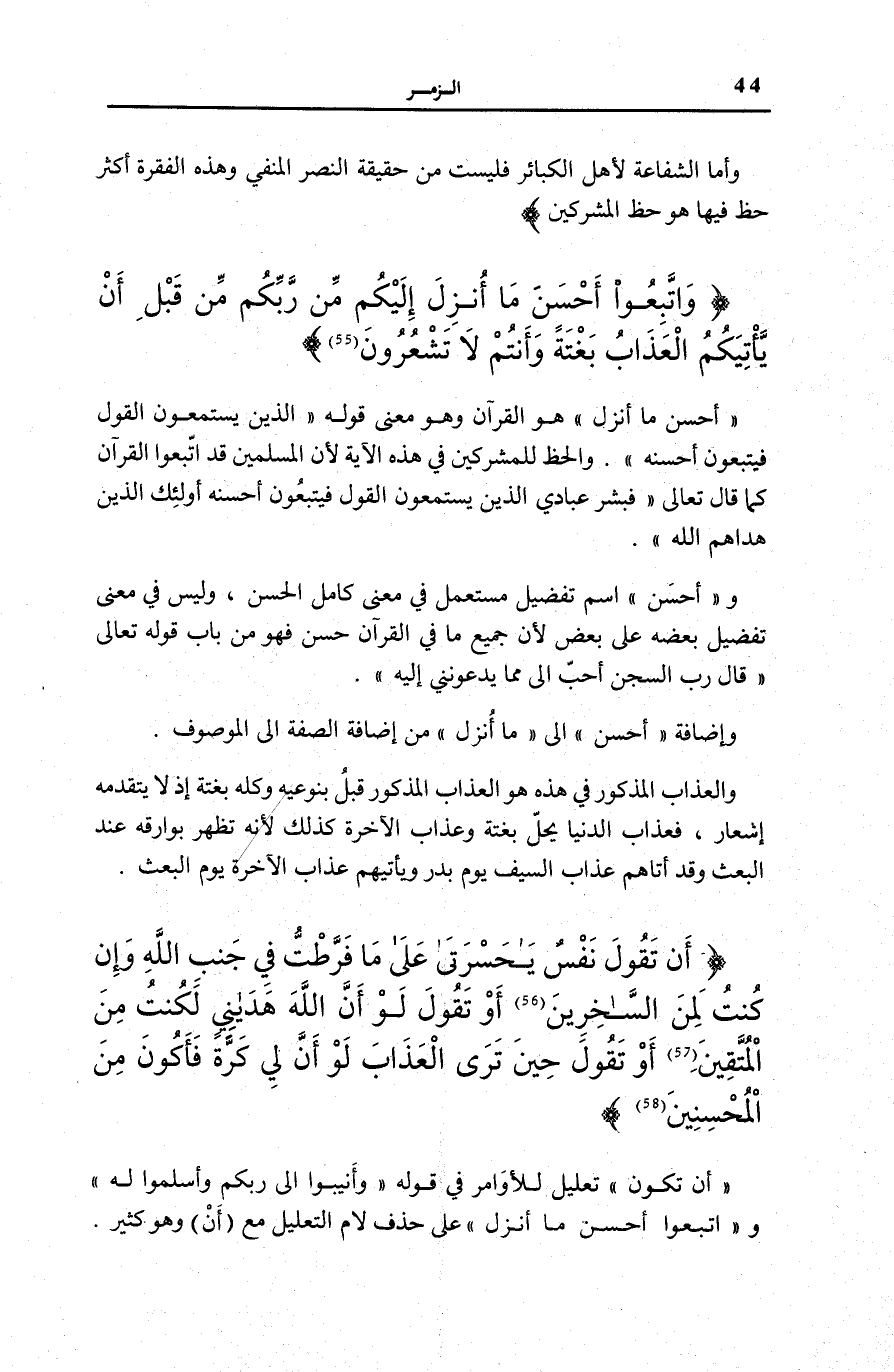 44
الـزمـــر
وأما الشفاعة لأهل الكبائر فليست من حقيقة النصر المنفي وهذه الفقرة أكثر
حظ فيها هو حظ المشركين ﴾
﴿ وَاتَّبِعُـواْ أَحْسَنَ مَا أُنـزِلَ إِلَيْكُم مِّن رَّبِّكُم مِّن قَبْلِ أَنْ
يَّأْتِيَكُمُ الْعَذَابُ بَغْتَةً وَأَنتُمْ لَا تَشْعُرُونَ(55) ﴾
« أحسن ما أنزل » هـو القرآن وهـو معنى قولـه « الذين يستمعـون القول
فيتبعون أحسنه » . والحظ للمشركين في هذه الآية لأن المسلمين قد اتّبعوا القرآن
كما قال تعالى « فبشر عبادي الذين يستمعون القول فيتبعُون أحسنه أولئِك الذين
هداهم الله » .
و « أحسَن » اسم تفضيل مستعمل في معنى كامل الحسن ، وليس في معنى
تفضيل بعضه على بعض لأن جميع ما في القرآن حسن فهو من باب قوله تعالى
« قال رب السجن أحبّ الى مما يدعونني إليه » .
وإضافة « أحسن » الى « ما أُنزل » من إضافة الصفة الى الموصوف .
والعذاب المذكور في هذه هو العذاب المذكور قبلُ بنوعيه وكله بغتة إذ لا يتقدمه
إشعار ، فعذاب الدنيا يحلّ بغتة وعذاب الآخرة كذلك لأنه تظهر بوارقه عند
البعث وقد أتاهم عذاب السيف يوم بدر ويأتيهم عذاب الآخرة يوم البعث .
﴿ أَن تَقُولَ نَفْسٌ يَـٰحَسْرَتَىٰ عَلَىٰ مَا فَرَّطْتُّ فِي جَنبِ اللَّهِ وَإِن
كُنتُ لَمِنَ السَّـٰخِرِينَ(56) أَوْ تَقُولَ لَـوْ أَنَّ اللَّهَ هَدَيٰنِي لَكُنتُ مِنَ
الْمُتَّقِينَ(57) أَوْ تَقُولَ حِينَ تَرَى الْعَذَابَ لَوْ أَنَّ لِي كَرَّةً فَأَكُونَ مِنَ
الْمُحْسِنِينَ(58) ﴾
« أن تكـون » تعليل لـلأوَامر في قـوله « وأَنيبـوا الى ربكم وأسلموا لـه »
و « اتبـعوا أحـسـن مـا أنـزل » على حذف لام التعليل مع (أنْ) وهو كثير .